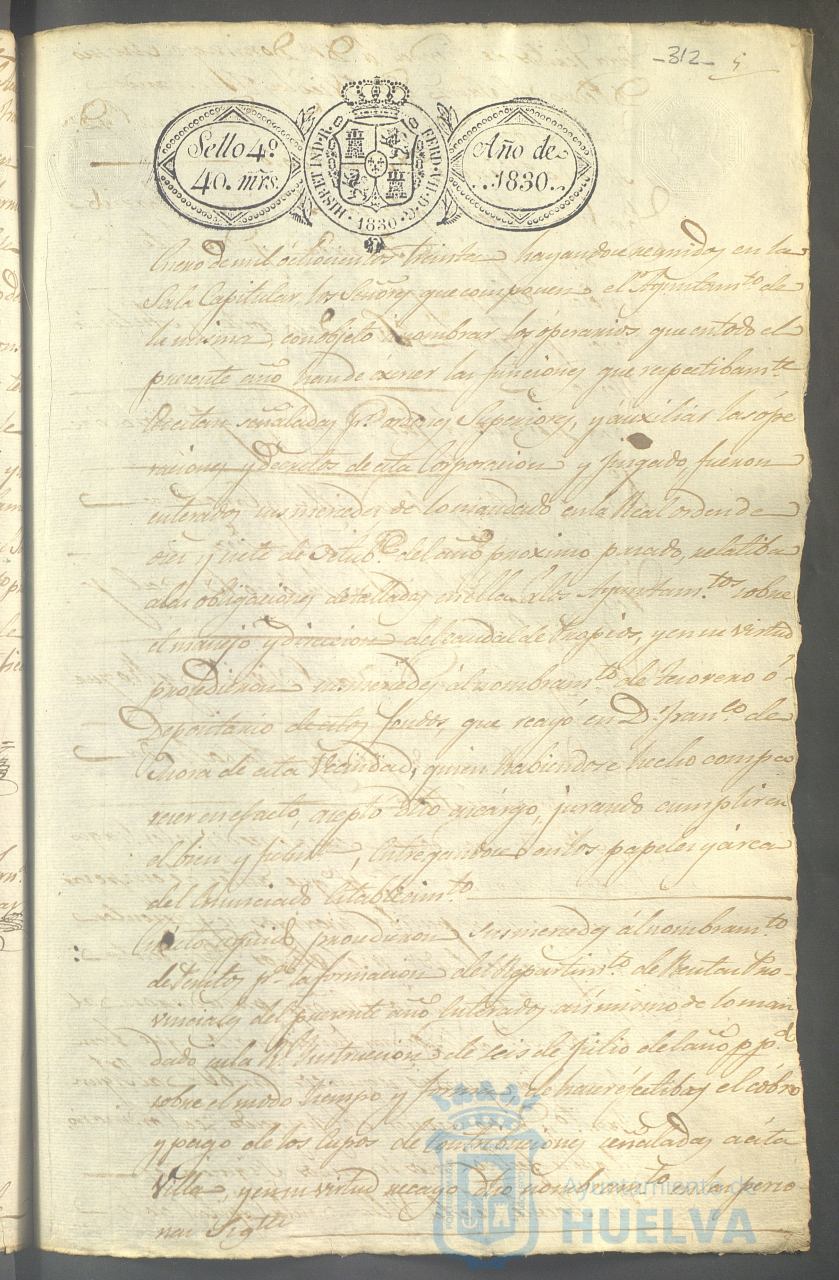 -312-
Sello 4º.
40. mrs.
HISP. ET IND. R. FERD. VII. D. G.
1830
Año de
1830.
Enero de mil ochocientos treinta hayandose reunidos en la
Sala Capitular los Señores que componen el Ayuntamto. de
la misma, con objeto a nombrar los óperarios que en todo el
presente año han de éxercer las funciones que respectibamte.
Se citan señaladas pr. ordenes Superiores, y áuxiliar las ópe
raciones y Decretos de esta Corporacion y Juzgado, fueron
enterados sus mercedes de lo mandado en la Real orden de
diez y siete de Octubre. del año proximo pasado, relatiba
a las óbligaciones detalladas en élla a los Ayuntamtos. sobre
el manejo y direccion del caudal de Propios, y en su virtud
procedieron sus mercedes ál nombramto. de tesorero ó
Depositario de estos fondos, que recayó en Dn. Franco. de
Mora de esta Vecindad, quien habiendose hecho compa
recer en el acto, aceptó dho éncargo, jurando cumplir en
el bien y fielmte., entregandose en los papeles y árca
del énunciado Establecimto.
Acto seguido, procedieron sus mercedes ál nombramto
de Peritos pa. la formacion del Repartimto. de Rentas Pro-
vinciales del presente año, enterados asi mismo de lo man
dado en la Rl. Instruccion de seis de Julio del año ppdo.
sobre el modo tiempo y forma de hacer éfectibas el cóbro
y pago de los cupos de Contribuciones señaladas a ésta
Villa, y en su virtud recayó dho nombramto. en las perso
nas Sigtes
Ayuntamiento de
HUELVA